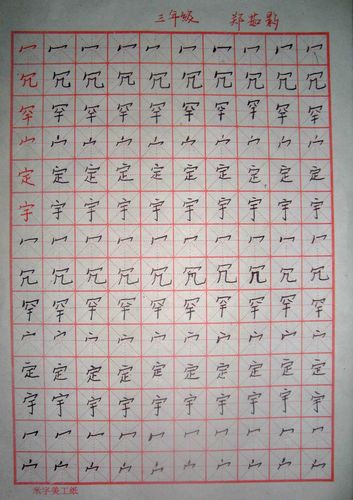 三年级 郑茹
冖冖冖冖冖冖冖冖冖冖
冗冗冗冗冗冗冗冗冗冗
罕罕罕罕罕罕罕罕罕罕
宀宀宀宀宀宀宀宀宀宀
定定定定定定定定定定
宇宇宇宇宇宇宇宇宇宇
冖冖冖冖冖冖冖冖冖冖
冗冗冗冗冗冗冗冗冗冗
罕罕罕罕罕罕罕罕罕罕
宀宀宀宀宀宀宀宀宀宀
定定定定定定定定定定
宇宇宇宇宇宇宇宇宇宇
冖冖冖冖冖冖冖冖冖冖
宀宀宀宀宀宀宀宀宀宀
米字美工紙